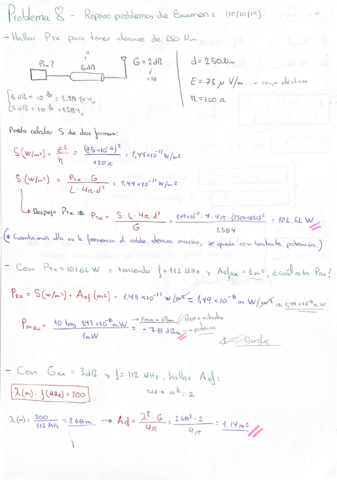 Problema 8 - Repaso problemas de Examen: (10/10/19)
- Hallar Ptx para tener alcance de 250 Km.
Ptx? 6dB G = 2dB d = 250 Km
E = 75 μ V/m → campo eléctrico
η = 120 π
6dB = 10^
2dB = 10^ = 1.584
Puedo calcular S de dos formas:
S (W/m²) = E²/η = (75×10⁻⁶)²/120π = 1,49×10⁻¹¹ W/m²
S (W/m²) = Ptx · G / L · 4π · d² = 1,49×10⁻¹¹ W/m²
Despejo Ptx ⇒ Ptx = S · L · 4π · d² / G = = 101.61 W
1.584
(* Cuanta más alta es la frecuencia el cable atenúa mucho, se queda con bastante potencia.)
- Con Ptx = 101.61 W y tomando f = 112 MHz y Aef = 1m², ¿cuál es Prx?
PRx = S (W/m²) · Aef (m²) = 1.49×10⁻¹¹ W/m² = 1,49×10⁻⁸ m W/m²
P = 10 log 1,49×10⁻⁸ mW / 1mW = -78 dBm → potencia
Duda
- Con GRx = 3dB y f = 112 MHz, hallar Aef:
λ(m) · f(MHz) = 300
λ(m) = 300 / 112 MHz = 2.68m ⇒ Aef = λ² · G / 4π = 2.68² · 2 / 4π = 1,14 m²